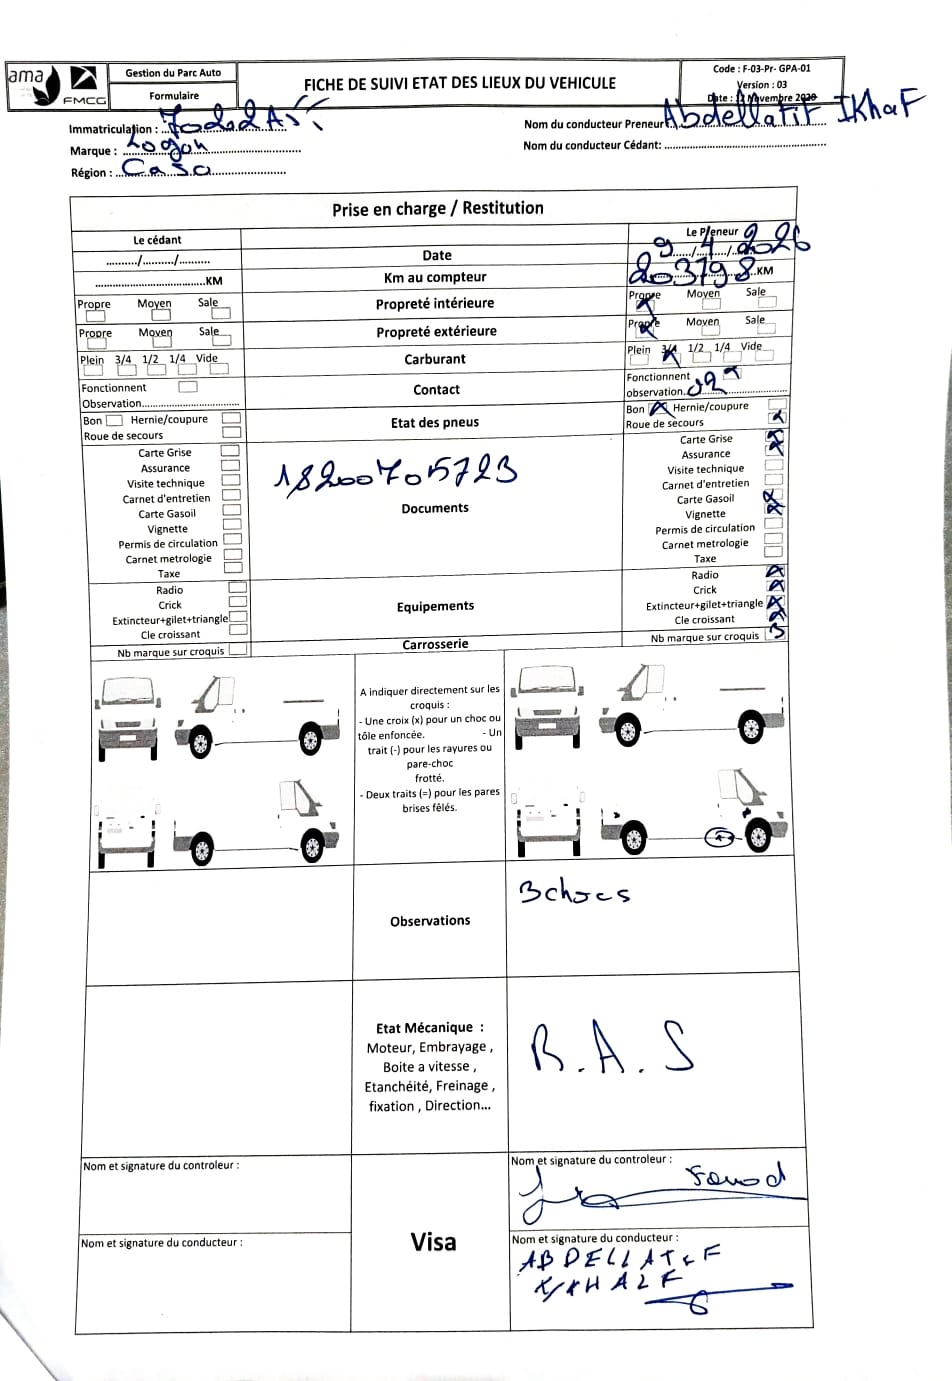 ama
FMCG
Gestion du Parc Auto
Formulaire
FICHE DE SUIVI ETAT DES LIEUX DU VEHICULE
Code : F-03-Pr- GPA-01
Version : 03
Date : 12 Novembre 2020
Immatriculation :
Marque : Logan
Région : Casa
Nom du conducteur Preneur: Abdellatif IKhaF
Nom du conducteur Cédant:
Prise en charge / Restitution
Le cédant
Le Preneur
........../........../..........
Date
9/4/2026
KM
Km au compteur
203798 KM
Propre Moyen Sale
Propreté intérieure
Propre Moyen Sale
Propre Moyen Sale
Propreté extérieure
Propre Moyen Sale
Plein 3/4 1/2 1/4 Vide
Carburant
Plein 3/4 1/2 1/4 Vide
Fonctionnent
Observation
Contact
Fonctionnent
observation
Bon Hernie/coupure
Roue de secours
Etat des pneus
Bon Hernie/coupure
Roue de secours
Carte Grise
Assurance
Visite technique
Carnet d'entretien
Carte Gasoil
Vignette
Permis de circulation
Carnet metrologie
Taxe
18200705723
Documents
Carte Grise
Assurance
Visite technique
Carnet d'entretien
Carte Gasoil
Vignette
Permis de circulation
Carnet metrologie
Taxe
Radio
Crick
Extincteur+gilet+triangle
Cle croissant
Equipements
Radio
Crick
Extincteur+gilet+triangle
Cle croissant
Nb marque sur croquis
Carrosserie
Nb marque sur croquis 3
A indiquer directement sur les
croquis :
- Une croix (x) pour un choc ou
tôle enfoncée. - Un
trait (-) pour les rayures ou
pare-choc
frotté.
- Deux traits (=) pour les pares
brises fêlés.
Observations
3 chocs
Etat Mécanique :
Moteur, Embrayage ,
Boite a vitesse ,
Etanchéité, Freinage ,
fixation , Direction...
R.A.S
Nom et signature du controleur :
Nom et signature du conducteur :
Visa
Nom et signature du controleur :
Nom et signature du conducteur :
ABDELLATIF